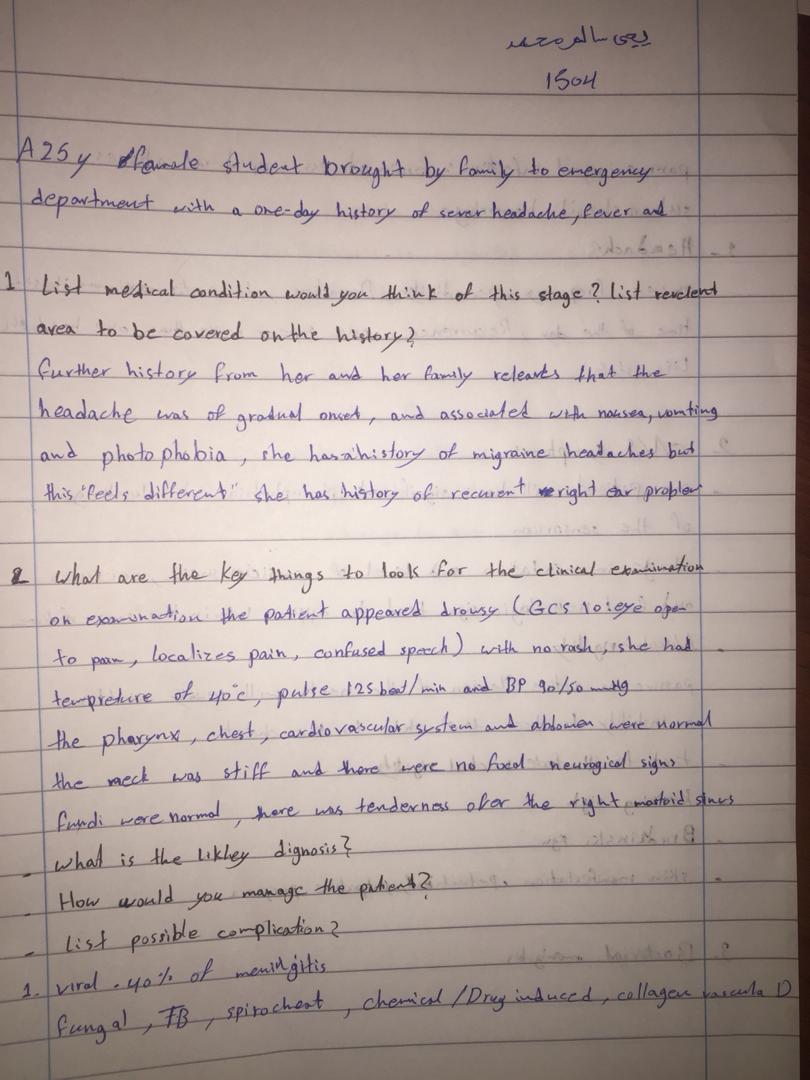 يحيى سالم محمد
1504
A 25 y female student brought by family to emergency
department with a one-day history of sever headache, fever and
1 List medical condition would you think of this stage? list revelent
area to be covered on the history?
further history from her and her family releavts that the
headache was of gradual onset, and associated with nausea, vomting
and photophobia, she has a history of migraine headaches but
this "feels different" she has history of recurent right ear problem
2 what are the key things to look for the clinical examination
on examination the patient appeared drowsy (GCS 10: eye open
to pain, localizes pain, confused speech) with no rash, she had
tempreture of 40°c, pulse 125 beat/min and BP 90/50 mmHg
the pharynx, chest, cardiovascular system and abdomen were normal
the neck was stiff and there were no focal neurogical signs
fundi were normal, there was tenderness ofer the right mastoid sinus
- what is the likley dignosis?
- How would you manage the patient?
- List possible complication?
1. viral . 40% of meningitis
fungal, TB, spirocheat, chemical / Drug induced, collagen vascula D